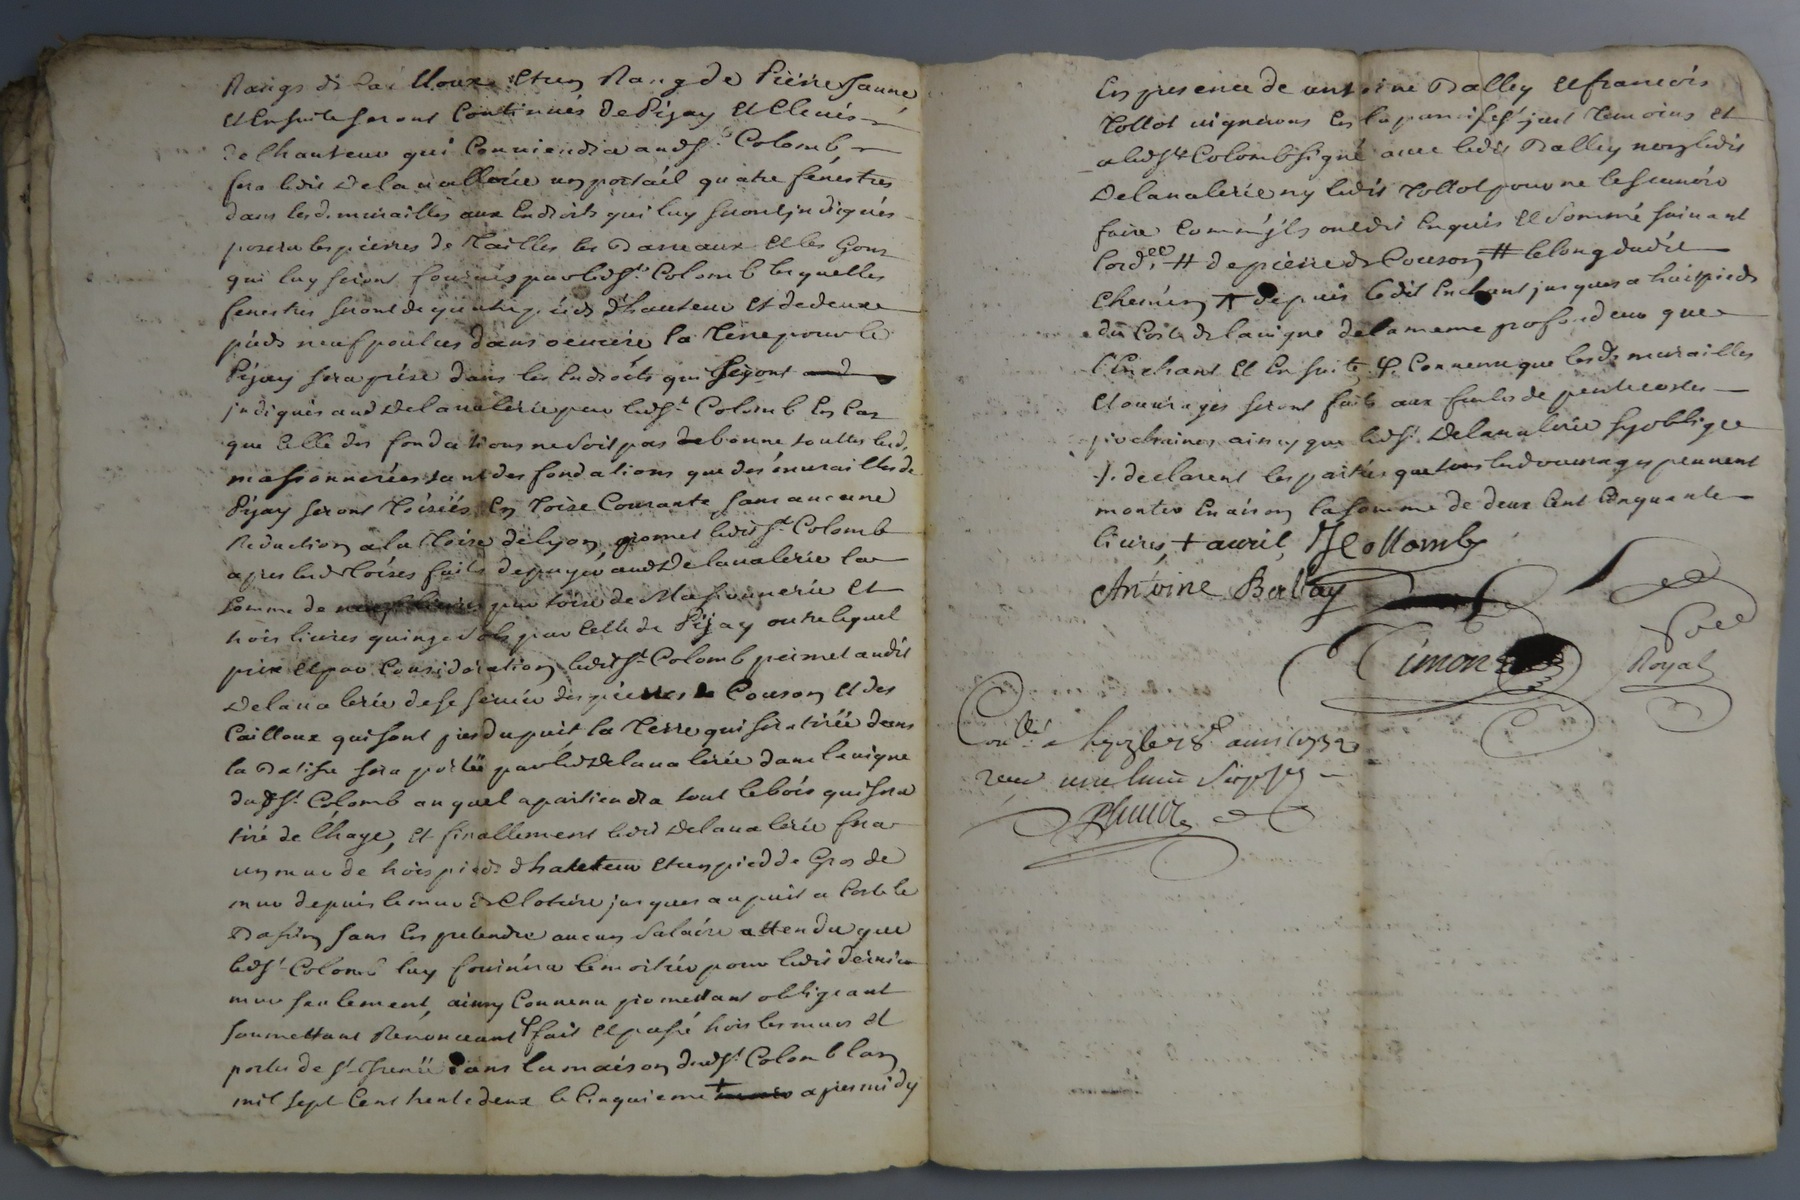 Rangs de Cailloux et un Rang de Pierre Jaune,
et Ensuite seront Continués de Pizay et Elevés
de lhauteur qui Conviendra aud Sr. Colomb,
fera ledit Delavallerie un portail quatre fenestres
dans lesd. murailles aux Endroits qui luy seront jndiqués
posera les pierres de Tailles les Barreaux et les Gons
qui luy seront fournis par led Sr. Colomb lesquelles
fenestres seront de quatre pieds d'hauteur et de deux
pieds neuf poulces dans oeuvre la Terre pour le
Pizay sera prise dans les Endroits qui seront
jndiqués aud Delavalerie par led Sr. Colomb En Cas
que Celle des fondations ne soit pas de bonne touttes lesd.
massonneries tant des fondations que des murailles de
Pizay seront Toisées En Toise Courante sans aucune
Reduction a la Toise de Lyon, promet ledit Sr. Colomb
apres lesd Toises faits de payer aud Delavalerie la
somme de neuf livres par toise de Massonnerie et
trois livres quinze sols par Celle de Pizay outre lequel
prix et par Consideration ledit Sr. Colomb permet audit
Delavalerie de se servir des pierres de Couson et des
Cailloux qui sont pres du puit la Terre qui sera tirée dans
la Batisse sera portée par led Delavalerie dans la vigne
dud Sr. Colomb auquel apartiendra tout le bois qui sera
tiré de l'haye, et finallement ledit Delavalerie fera
un mur de trois pieds d'hauteur et un pied de Gros de
mur depuis le mur de Cloture jusques au puit a Costé le
Bassin sans En pretendre aucun Salaire attendu que
led Sr. Colomb luy fournira le mortier pour ledit dernier
mur seulement, ainsy Convenu promettant obligeant
soumettant Renonceant fait et passé hors les murs et
portes de St. Irenée dans la maison dud Sr. Colomb lan
mil sept Cent trente deux le Cinquieme + apres midy
En presence de antoine Balley et francois
Tollot vignerons En la paroisse St. just Temoins et
a led Sr. Colomb signé avec ledit Balley non ledit
Delavalerie ny ledit Tollot pour ne le scavoir
faire Comm'jls ont dit Enquis et sommé suivant
lord.ce # de pierre de Couson # le long dudit
Chemin depuis ledit Enchant jusques a huit pieds
du Costé de la vigne de la meme profondeur que
l'Enchant et Ensuite Convenu que lesd. murailles
et ouvrages seront faits aux festes de pentecostes
prochaines ainsy que led Sr. Delavalerie sy oblige
declarent les parties que tous lesd ouvrages peuvent
monter Environ la somme de deux Cent Cinquante
livres, + avril, J Collomb
Antoine Ballay
Simon
Royal
Con.llé a Lyon le 18e avril 1732